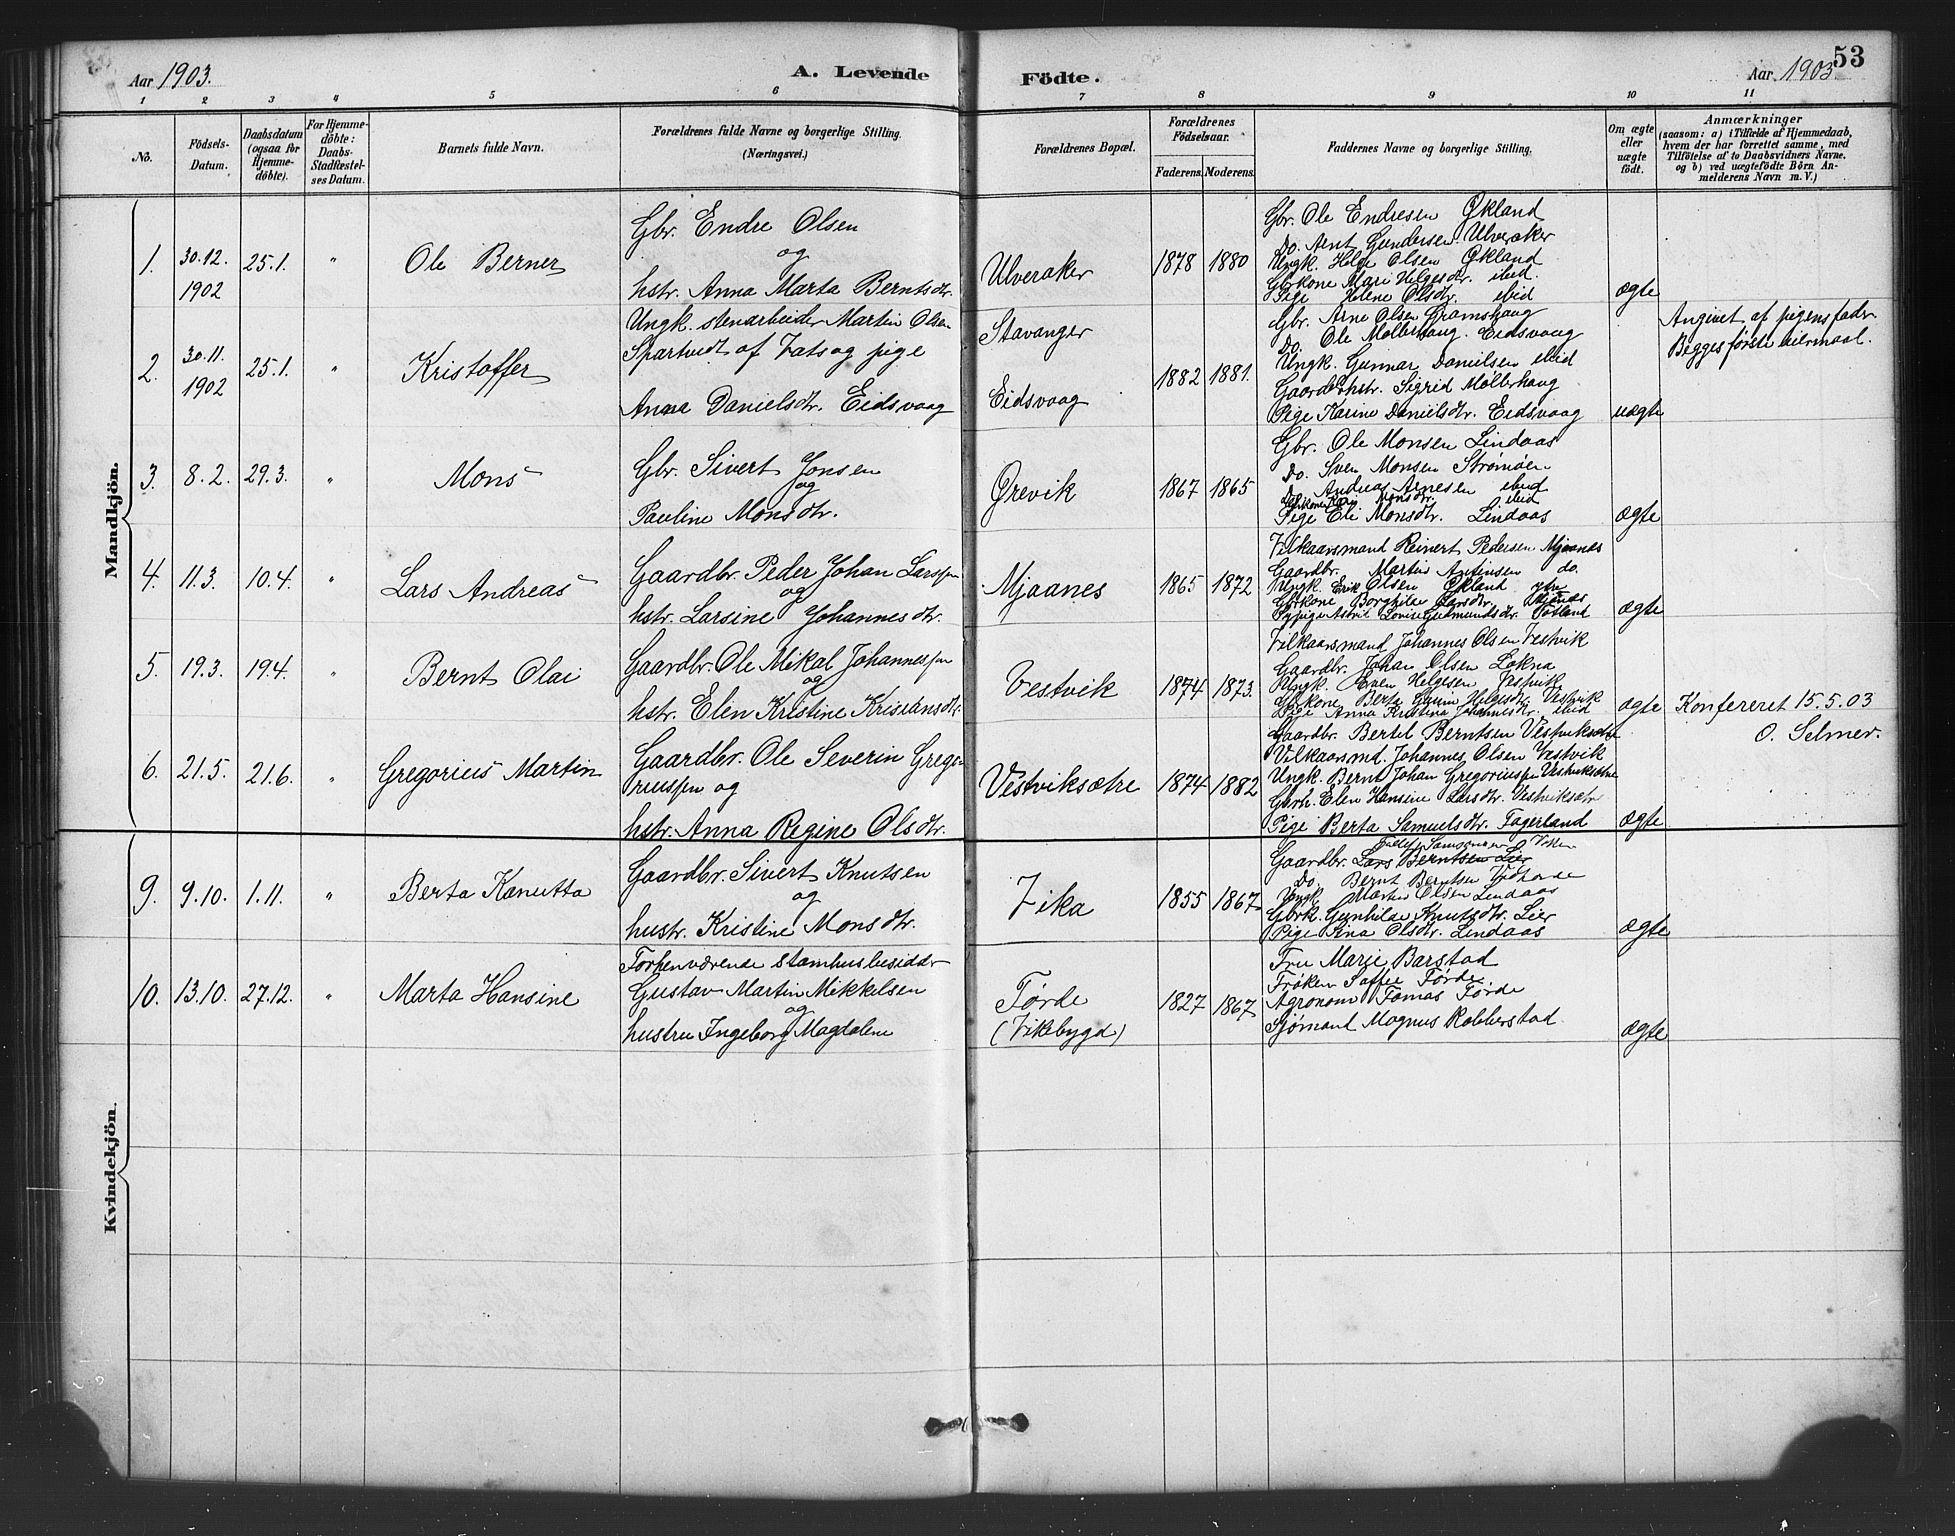 53
Aar 1903.
A. Levende Födte.
Aar 1903
1 2 3 4 5 6 7 8 9 10 11
No.
Födsels-Datum.
Daabsdatum (ogsaa for Hjemme-döbte).
For Hjemme-döbte: Daabs-Stadfæstel-ses Datum.
Barnets fulde Navn.
Forældrenes fulde Navne og borgerlige Stilling. (Næringsvei.)
Forældrenes Bopæl.
Forældrenes Födselsaar.
Faderens. Moderens.
Faddernes Navne og borgerlige Stilling.
Om ægte eller uægte født.
Anmærkninger
(saasom: a) i Tilfælde af Hjemmedaab,
hvem der har forrettet samme, med
Tilföielse af to Daabsvidners Navne.
og b) ved uægtefödte Börn An-
melderens Navn m. V.)
Mandkjön.
1. 30.12. 1902 25.1. "
Ole Berner
Gbr. Endre Olsen
og
hstr. Anna Marta Berntsdtr.
Ulveraker
1878 1880
Gbr. Ole Endresen Økland
Do. Arnt Gundersen Ulveraker
Ungk. Helge Olsen Økland
Gbrkone Mari Helgesdtr. ibid.
Pige Helene Olsdtr. ibid
ægte
2. 30.11. 1902 25.1. "
Kristoffer
Ungk. stenarbeider Martin Olsen
Spartveit af Vats og pige
Anna Danielsdtr. Eidsvaag
Stavanger
Eidsvaag
1882 1881.
Gbr. Arne Olsen Framshaug
Do. Ole Møllerhaug. Eidsvaag
Ungk. Gunnar Danielsen ibid
Gaardbrhstr. Sigrid Møllerhaug
Pige Karine Danielsdtr. Eidsvaag
uægte
Angivet af pigens fader
Begges første leiermaal.
3. 8.2. 29.3. "
Mons
Gbr. Sivert Jonsen
og
Pauline Monsdtr.
Ørevik
1867 1865
Gbr. Ole Monsen Lindaas
Do. Sven Monsen Strømøen
Do. Andreas Arnesen ibid
Gbrkone Kari Monsdtr. ibid
Pige Eli Monsdtr. Lindaas
ægte
4. 11.3. 10.4. "
Lars Andreas
Gaardbr. Peder Johan Larssen
og
hstr. Larsine Johannesdtr.
Mjaanes
1865 1872
Vilkaarsmand Reinert Pedersen Mjaanes
Gaardbr. Martin Antinsen do.
Ungk. Erik Olsen Økland
Gbrkone Borghilde Larsdtr. Mjaanes
Lovise Gudmundsdtr.
ægte
5. 19.3. 19.4. "
Bernt Olai
Gaardbr. Ole Mikal Johannessen
og
hstr. Elen Kristine Kristensdtr.
Vestvik
1874 1873.
Vilkaarsmand Johannes Olsen Vestvik
Gaardbr. Johan Olsen Løkna
Ungk. Even Helgesen Vestvik
Gbrkone Berta Helgesdtr. Vestvik
Pige Anna Kristina Johannesdtr. ibid
ægte
Konfereret 15.5.03
O. Selmer.
6. 21.5. 21.6. "
Gregorius Martin
Gaardbr. Ole Severin Grego-
riussen og
hstr. Anna Regine Olsdtr.
Vestviksætre
1874 1882
Gaardbr. Bertil Berntsen Vestviksætre
Vilkaarsmd. Johannes Olsen Vestvik
Ungk. Bernt Johan Gregoriussen Vestviksætre
Gbrk. Elen Hansine Larsdtr. Vestviksætre
Pige Berta Samuelsdtr. Fagerland
ægte
Kvindekjön.
9. 9.10. 1.11. "
Berta Kanutta
Gaardbr. Sivert Knutsen
og
hustr. Kristine Monsdtr.
Vika
1855 1867
Gaardbr. Lars Berntsen Lier
Do. Bernt Berntsen
Ungk. Martin Olsen Lindaas
Gbrk. Gunhilde Knutsdtr. Lier
Pige Sina Olsdtr. Lindaas
ægte
10. 13.10. 27.12. "
Marta Hansine
Forhenværende stamhusbesidder
Gustav Martin Mikkelsen
og
hustru Ingeborg Magdalene
Førde
(Vikebygd)
1827 1867
Fru Marie Barstad
Frøken Soffie Førde
Agronom Tomas Førde
Sjømand Magnus Robberstad
ægte